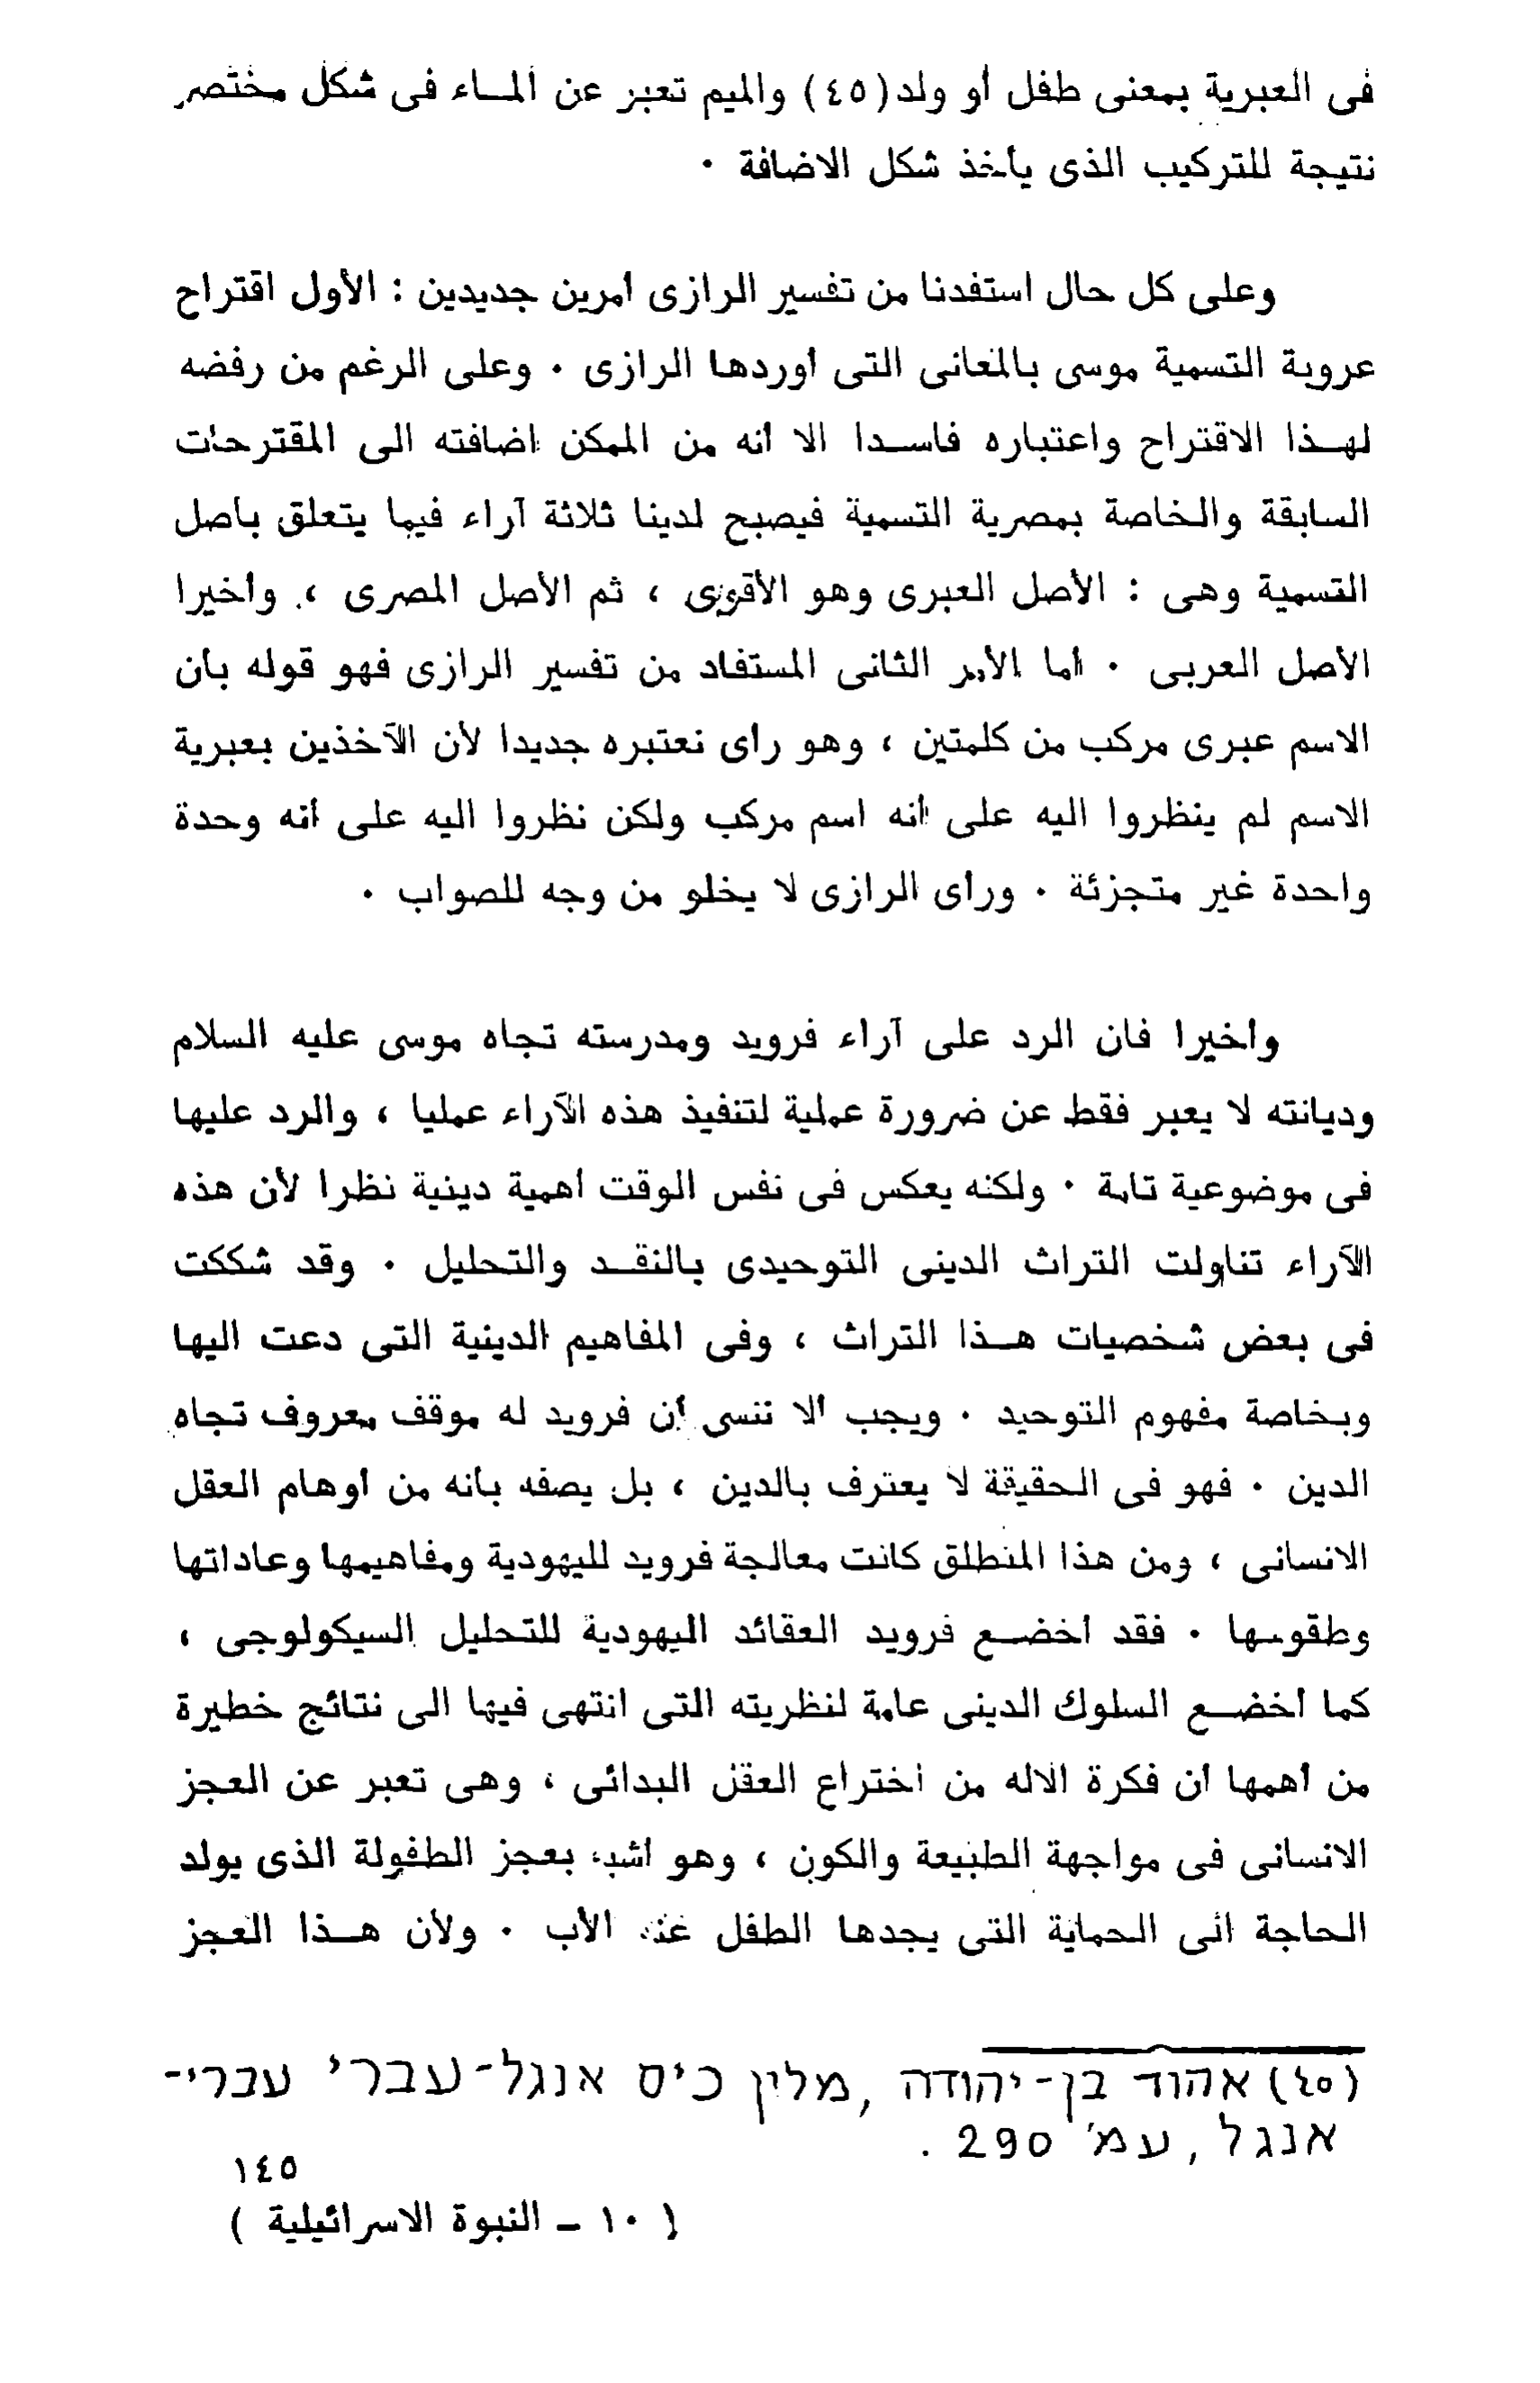 فى العبرية بمعنى طفل أو ولد (٤٥) والميم تعبر عن المـاء فى شكل مختصر
نتيجة للتركيب الذى يأخذ شكل الاضافة ٠
وعلى كل حال استفدنا من تفسير الرازى أمرين جديدين : الأول اقتراح
عروبة التسمية موسى بالمعانى التى أوردها الرازى ٠ وعلى الرغم من رفضه
لهـذا الاقتراح واعتباره فاسـدا الا أنه من الممكن اضافته الى المقترحات
السابقة والخاصة بمصرية التسمية فيصبح لدينا ثلاثة آراء فيما يتعلق بأصل
التسمية وهى : الأصل العبرى وهو الأقوى ، ثم الأصل المصرى ، وأخيرا
الأصل العربى ٠ أما الأمر الثانى المستفاد من تفسير الرازى فهو قوله بأن
الاسم عبرى مركب من كلمتين ، وهو رأى نعتبره جديدا لأن الآخذين بعبرية
الاسم لم ينظروا اليه على أنه اسم مركب ولكن نظروا اليه على أنه وحدة
واحدة غير متجزئة ٠ ورأى الرازى لا يخلو من وجه للصواب ٠
وأخيرا فان الرد على آراء فرويد ومدرسته تجاه موسى عليه السلام
وديانته لا يعبر فقط عن ضرورة عملية لتنفيذ هذه الآراء عمليا ، والرد عليها
فى موضوعية تامة ٠ ولكنه يعكس فى نفس الوقت أهمية دينية نظرا لأن هذه
الآراء تناولت التراث الدينى التوحيدى بالنقـد والتحليل ٠ وقد شككت
فى بعض شخصيات هـذا التراث ، وفى المفاهيم الدينية التى دعت اليها
وبخاصة مفهوم التوحيد ٠ ويجب ألا ننسى أن فرويد له موقف معروف تجاه
الدين ٠ فهو فى الحقيقة لا يعترف بالدين ، بل يصفه بأنه من أوهام العقل
الانسانى ، ومن هذا المنطلق كانت معالجة فرويد لليهودية ومفاهيمها وعاداتها
وطقوسها ٠ فقد أخضـع فرويد العقائد اليهودية للتحليل السيكولوجى ،
كما أخضـع السلوك الدينى عامة لنظريته التى انتهى فيها الى نتائج خطيرة
من أهمها أن فكرة الاله من اختراع العقل البدائى ، وهى تعبر عن العجز
الانسانى فى مواجهة الطبيعة والكون ، وهو أشبه بعجز الطفولة الذى يولد
الحاجة الى الحماية التى يجدها الطفل عند الأب ٠ ولأن هـذا العجز
(٤٥) אהוד בן-יהודה, מלין כיס אנגל-עברי עברי-
אנגל, עמ' 290 .
١٤٥
( ١٠ – النبوة الاسرائيلية )